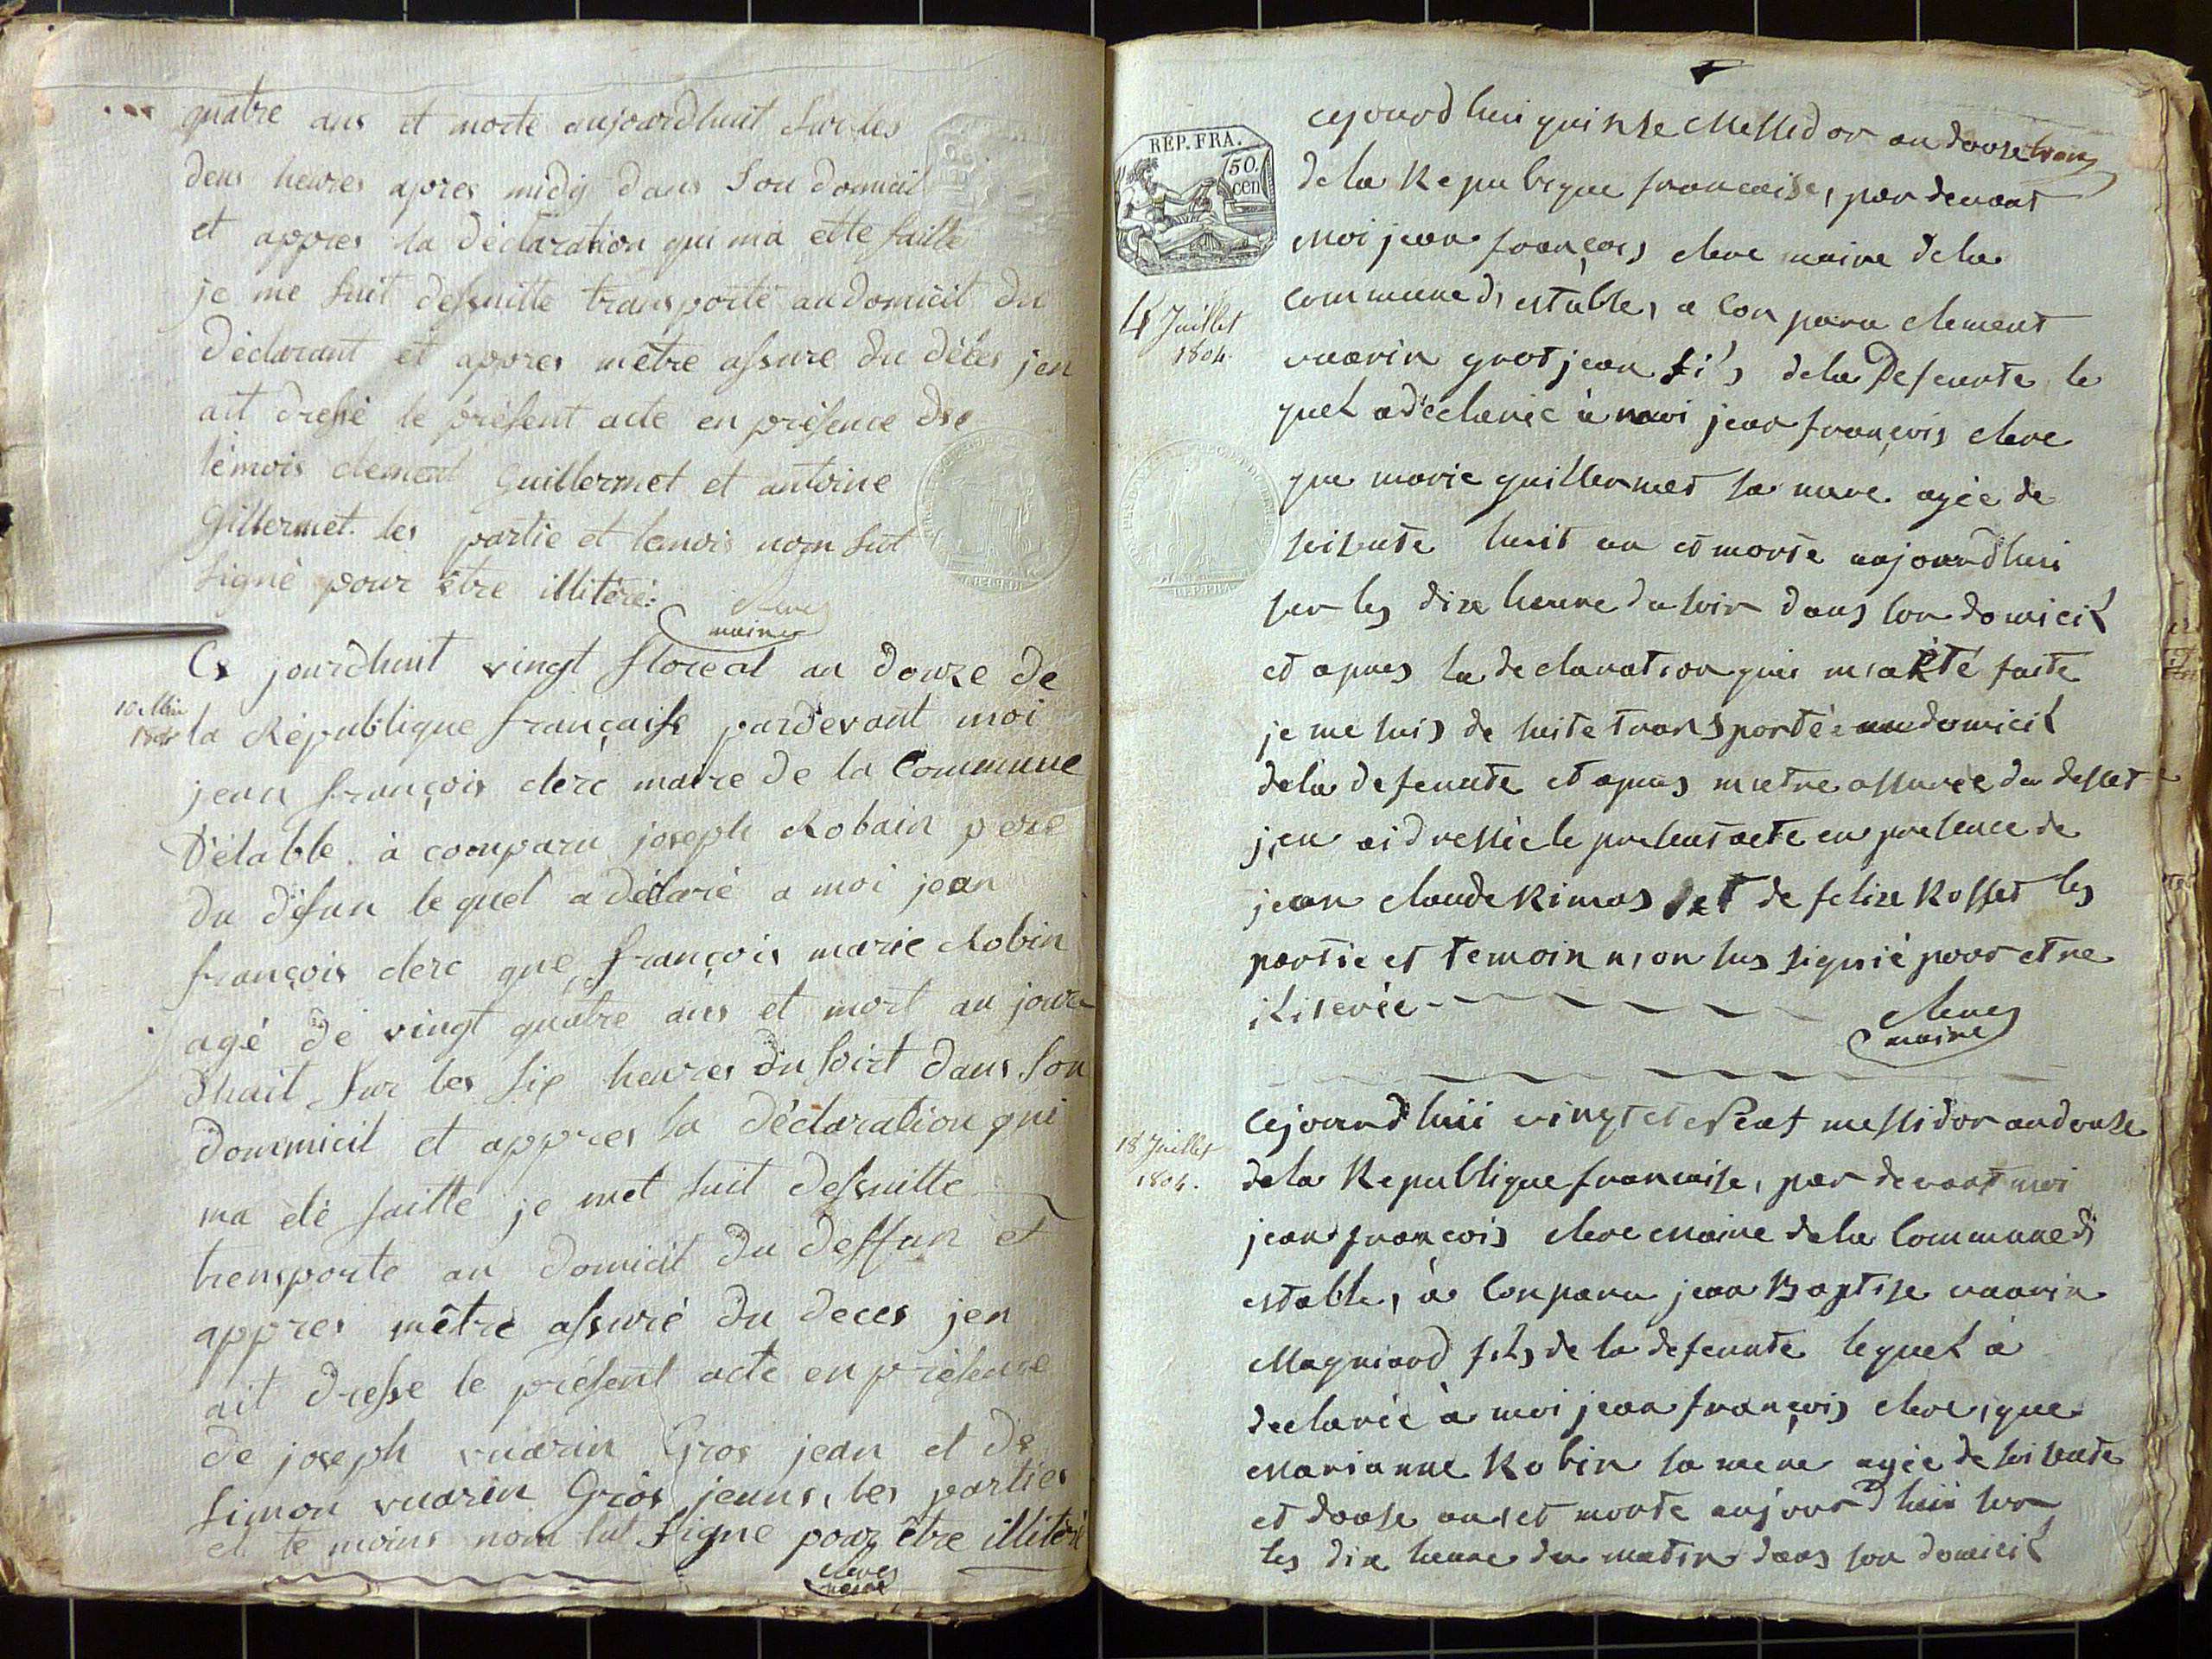 quatre ans et morte aujourdhuit sur les
deus heures apres midy dans son domicil
et appres la déclaration qui ma ette faille
je me suit dessuitte transporté au domicil du
déclarant et appres mêtre assure du décès jen
ait dressé le présent acte en présence de
témois clement Guillermet et antoine
Gillermet. les partie et temois nom sut
signé pour être illitéré:
clerc
maire
Ce jourdhuit vingt floreal an douze de
10 Mai
1804
la République française pardevant moi
jean françois clerc maire de la Commune
D'étable. à comparu joseph Robain pere
du défun lequel a déclaré a moi jean
françois clerc que françois marie Robin
agé de vingt quatre ans et mort au jour
dhuit sur les six heures du soirt dans son
dommicil et appres la déclaration qui
ma été faitte je met suit dessuitte
transporte au domicil du deffun et
appres mêtre assuré du deces jen
ait dresse le présent acte en présence
de joseph vuarin Gros jean et de
simon vuarin Gros jeans, les parties
et te moins nom sut signe pour être illitéré
clerc
maire
REP. FRA.
50.
cen
cejourdhui quinse Messidor an doose
de la Republique francaise, par devant
Moi jean françois clerc maire de la
4 Juillet
1804.
commune d, estable, a Con paru clement
vuarin grosjean fils de la Defeunte le
quel a déclarée à moi jean françois clerc
que marie guillermet sa mere agée de
soisente huit an et morte aujourdhui
sur les dixe heure du soir dans son domicil
et apres la declaration qui m,a été faite
je me suis de suite transporté au domicil
de la defeunte et apres mietre assurée du desset
j,en ai dressée le presens acte en presence de
jean claude Rimas et de felixe Rosset les
partie et temoin n,on sus signié pour etre
iliterée
clerc
maire
cejourdhuii vingt et neuf messidor an douse
18 Juillet
1804.
de la Republique francaise, par devant moi
jean françois clerc Maire de la Commune d,
estable, à Conparu jean Baptise vuarin
Magniard fils de la defeunte lequel à
declarée à moi jean françois clerc, que
Marianne Robin sa mere agée de soisente
et doose ans et morte aujourdhuii sur
les dix heure du matin dans son domicil